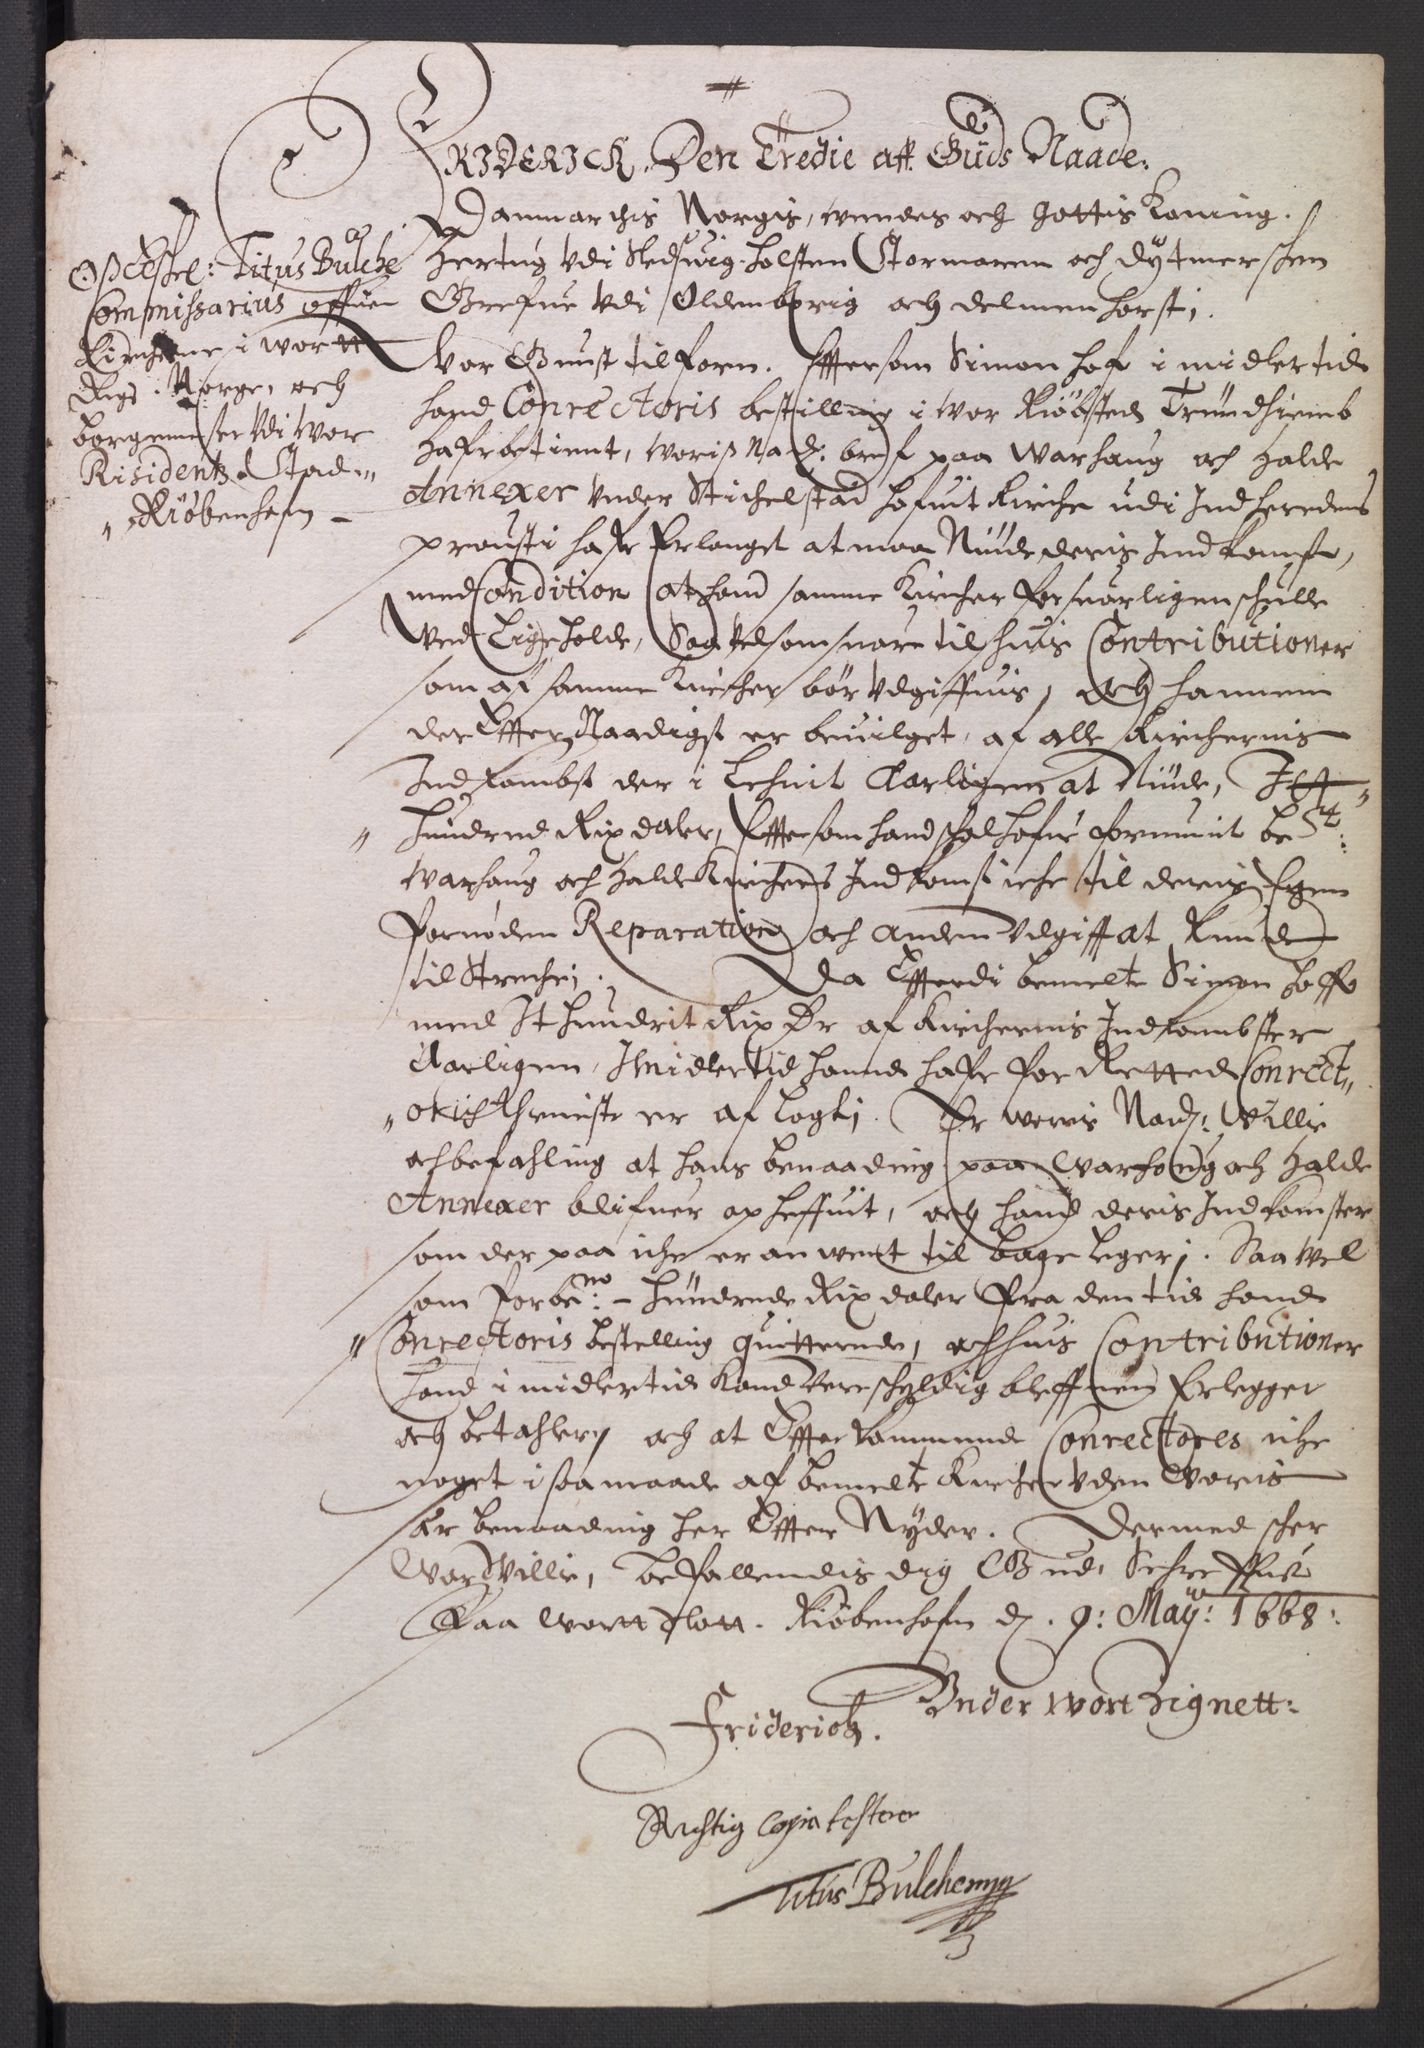 FRIDERICK, Den Tredie aff Guds Naade:
Danmarchis Norgis, wendes och Gottis Koning.
Hertug vdi Sledswig holsten Stormarn och dytmerschen
Grefue vdi Oldenborig och delmenhorst,
Titus Bulche
Commissarius offuer
Kircherne i wortt
Rige Norge, och
borgemester vdi wor
Residentz Stad
Kiöbenhafn
Vor Gunst tilforn. Efftersom Simon Hof i midlertid
hand Conrectoris bestilling i wor Kiöbsted Trundhiemb
hafr betient, woris Nad: bref paa warhaug och Halde
Annexer vnder Stichelstad hofuit Kirche udi Indherreds
prousti hafr Erlanget at maa Niude deris Indkomst,
med Condition at hand samme Kircher forsuarligen schulle
Ved lige holde, Saa velsom suare til huis Contributioner
som af samme Kircher bör vdgiffuis, och hannem
der Effter Naadigst er beuilget, af alle Kirchernis
Indkombst der i Lehnit Aarligen at Niude, Itt
hundrede Rixdaler, Eftersom hand schal hafue formeent bete
warhaug och Halde Kirchers Indkomst iche til deris Egen
fornöden Reparation och anden Vdgifft at kunde
til Streche. Da Effterdi bemelte Simon Hoff
med It hundrit Rix Dr af Kirchernis Indkombster
Aarligen, Imidlertid hand hafr forRettet Conrect
orich thieniste er aflagt. Er woris Nad: Villie
och befahling at hans benaading paa warhoug och Halde
Annexer blifuer opheffuit, och hand deris Indkomster
som der paa iche er anwent til bage leger. Saa wel
som forbe:no hundrede Rixdaler fra den tid hand
Conrectoris bestelling quitterede, och huis Contributioner
hand i midlertid kand vere schyldig bleffuen Erlegger
och betahler, och at Effterkommende Conrectores iche
noget i saa maade af bemelte Kircher vden Voris
sær benaading her Effter Nyder. Dermed scher
Vor Villie, befallendis dig Gud, Schreffuet
Paa wortt Slott. Kiöbenhafn d. 9: Maÿ: 1668:
Vnder wort Zignett:
Friderich.
Rictig Copia testerer
Titus Bulche mpp